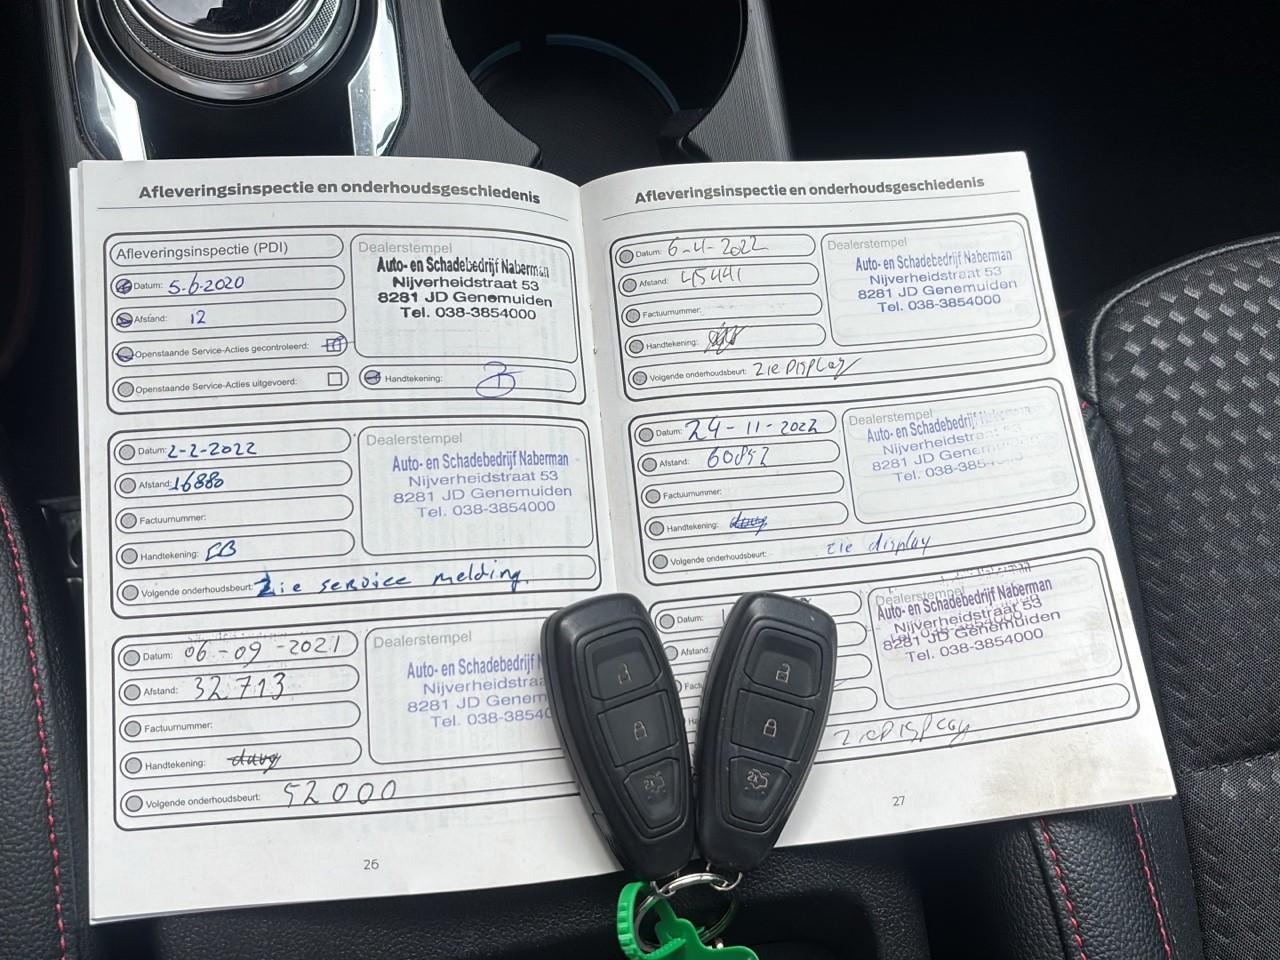 Afleveringsinspectie en onderhoudsgeschiedenis
Afleveringsinspectie (PDI)
Datum: 5-6-2020
Afstand: 12
Openstaande Service-Acties gecontroleerd:
Openstaande Service-Acties uitgevoerd:
Dealerstempel
Auto- en Schadebedrijf Naberman
Nijverheidstraat 53
8281 JD Genemuiden
Tel. 038-3854000
Handtekening:
Datum: 2-2-2022
Afstand: 16880
Factuurnummer:
Handtekening:
Volgende onderhoudsbeurt: Zie service melding.
Dealerstempel
Auto- en Schadebedrijf Naberman
Nijverheidstraat 53
8281 JD Genemuiden
Tel. 038-3854000
Datum: 06-09-2021
Afstand: 32713
Factuurnummer:
Handtekening:
Volgende onderhoudsbeurt: 52000
Dealerstempel
Auto- en Schadebedrijf
Nijverheidstraat
8281 JD
Tel. 038-3854
26
Afleveringsinspectie en onderhoudsgeschiedenis
Datum: 6-4-2022
Afstand: 45441
Factuurnummer:
Handtekening:
Volgende onderhoudsbeurt: Zie Display
Dealerstempel
Auto- en Schadebedrijf Naberman
Nijverheidstraat 53
8281 JD Genemuiden
Tel. 038-3854000
Datum: 24-11-2022
Afstand: 60852
Factuurnummer:
Handtekening:
Volgende onderhoudsbeurt: zie display
Dealerstempel
Auto- en Schadebedrijf Naberman
Nijverheidstraat 53
8281 JD Genemuiden
Tel. 038-385
Datum:
Afstand:
Dealerstempel
Auto- en Schadebedrijf Naberman
Nijverheidstraat 53
8281 JD Genemuiden
Tel. 038-3854000
Zie Display
27
2x
2x